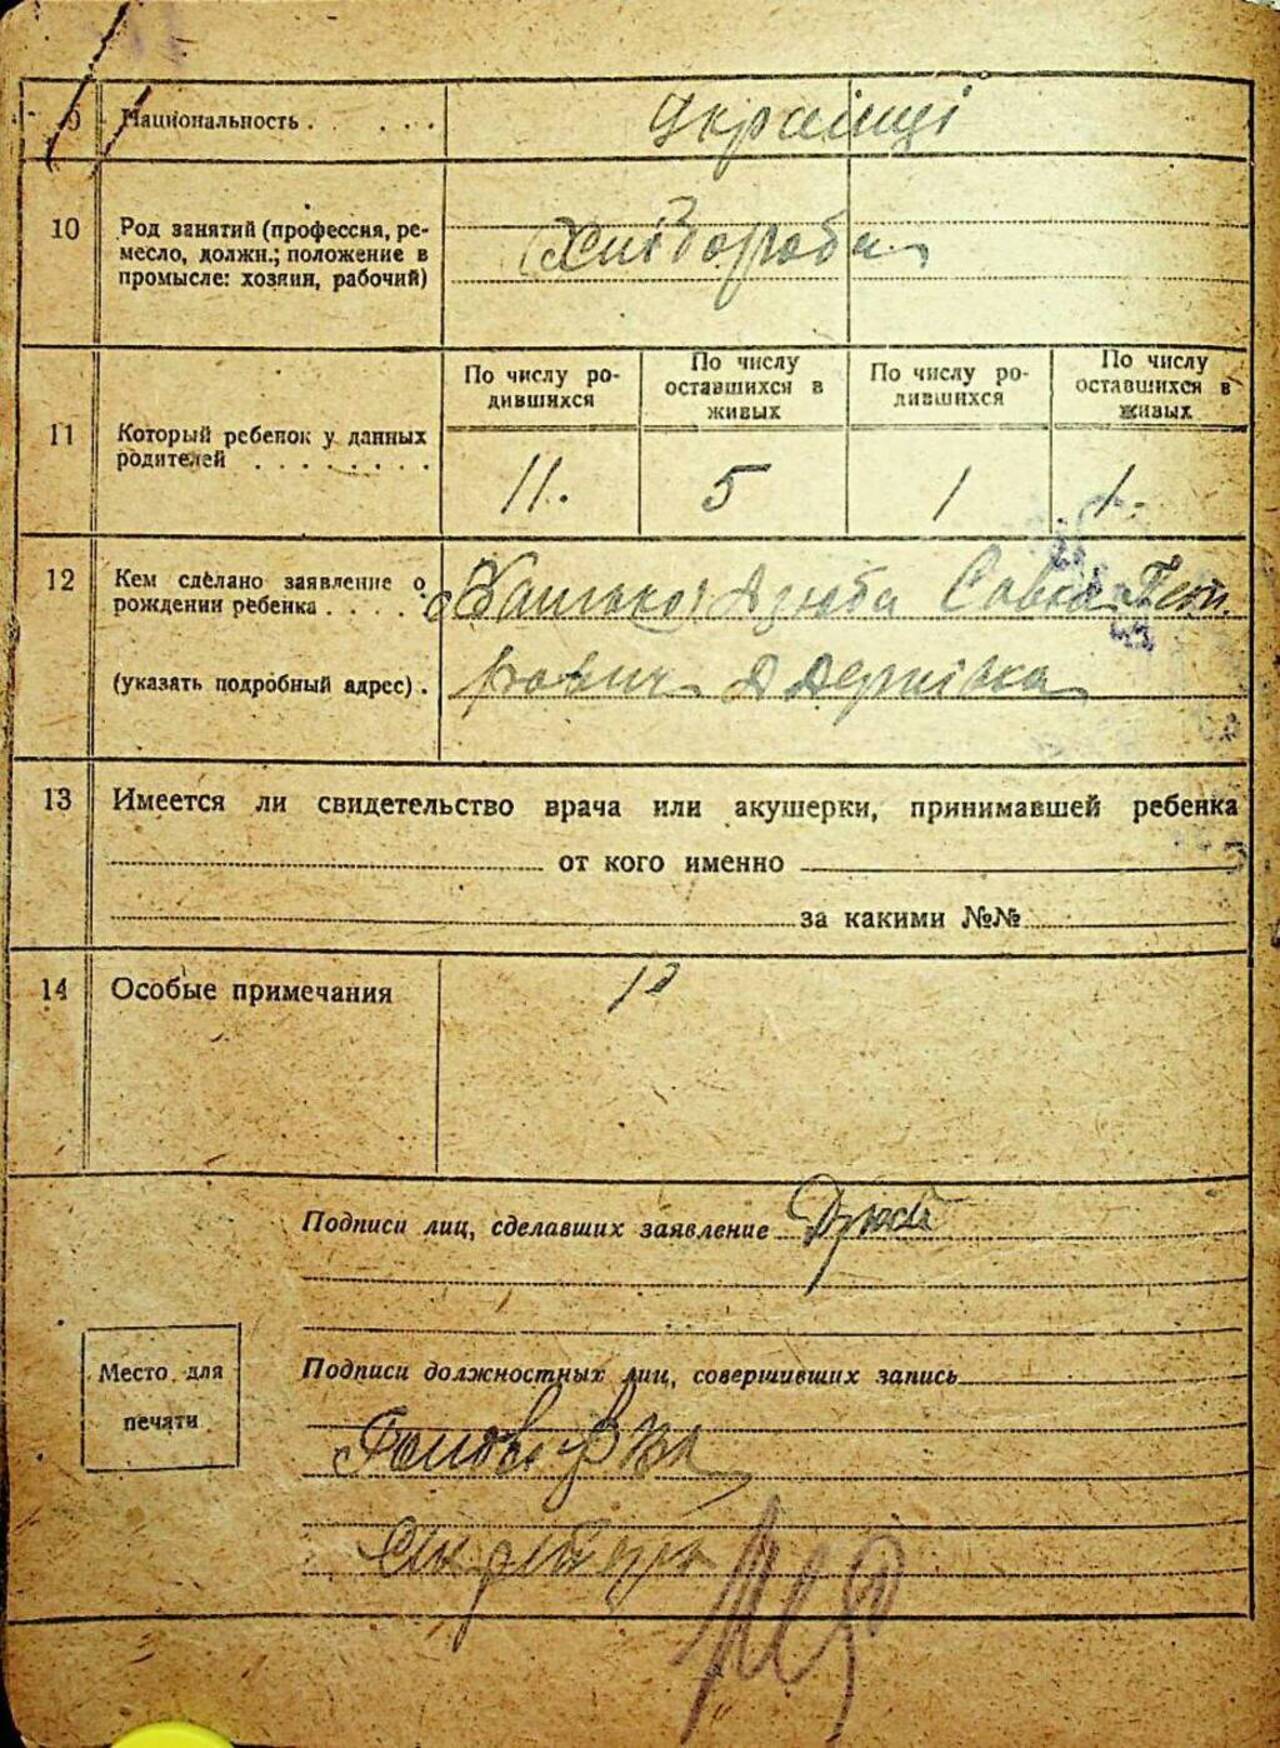 9 Национальность . . . . Українці
10 Род занятий (профессия, ре-
месло, должн.; положение в
промысле: хозяин, рабочий)
Хлібороби
По числу ро-
дившихся
По числу
оставшихся в
живых
По числу ро-
дившихся
По числу
оставшихся в
живых
11 Который ребенок у данных
родителей . . . . . . . .
11. 5 1 1.
12 Кем сделано заявление о
рождении ребенка . . . . .
Батько Дзюба Сава Пет
(указать подробный адрес) .
рович
13 Имеется ли свидетельство врача или акушерки, принимавшей ребенка
от кого именно
за какими №№
14 Особые примечания
Подписи лиц, сделавших заявление Дзюба
Место для
печати
Подписи должностных лиц, совершивших запись
Голова
Секретарь